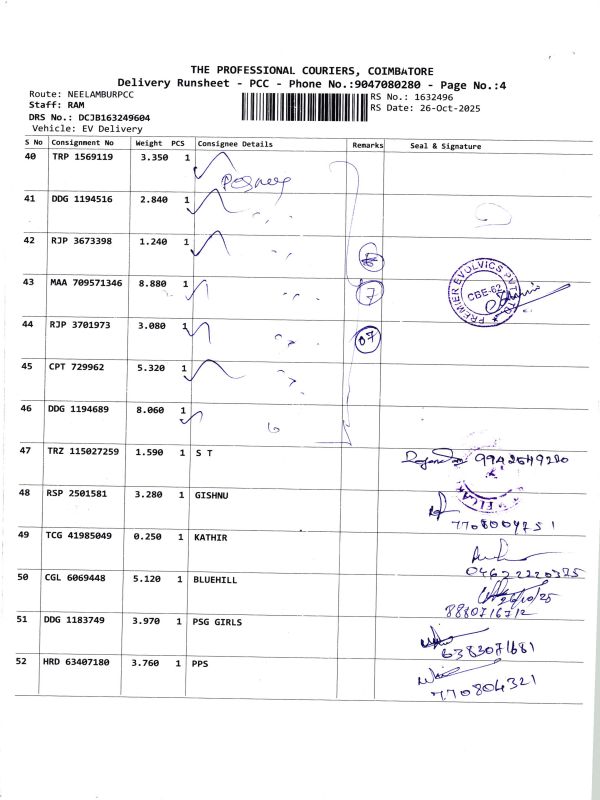 THE PROFESSIONAL COURIERS, COIMBATORE
Delivery Runsheet - PCC - Phone No.:9047080280 - Page No.:4
Route: NEELAMBURPCC RS No.: 1632496
Staff: RAM RS Date: 26-Oct-2025
DRS No.: DCJB163249604
Vehicle: EV Delivery
S No Consignment No Weight PCS Consignee Details Remarks Seal & Signature
40 TRP 1569119 3.350 1
41 DDG 1194516 2.840 1
42 RJP 3673398 1.240 1
43 MAA 709571346 8.880 1 7
PREMIER EVOLVICS PVT LTD CBE-62
44 RJP 3701973 3.080 1 07
45 CPT 729962 5.320 1
46 DDG 1194689 8.060 1
47 TRZ 115027259 1.590 1 S T
48 RSP 2501581 3.280 1 GISHNU
49 TCG 41985049 0.250 1 KATHIR
50 CGL 6069448 5.120 1 BLUEHILL
26/10/25
8880716712
51 DDG 1183749 3.970 1 PSG GIRLS
6383071681
52 HRD 63407180 3.760 1 PPS
770804321